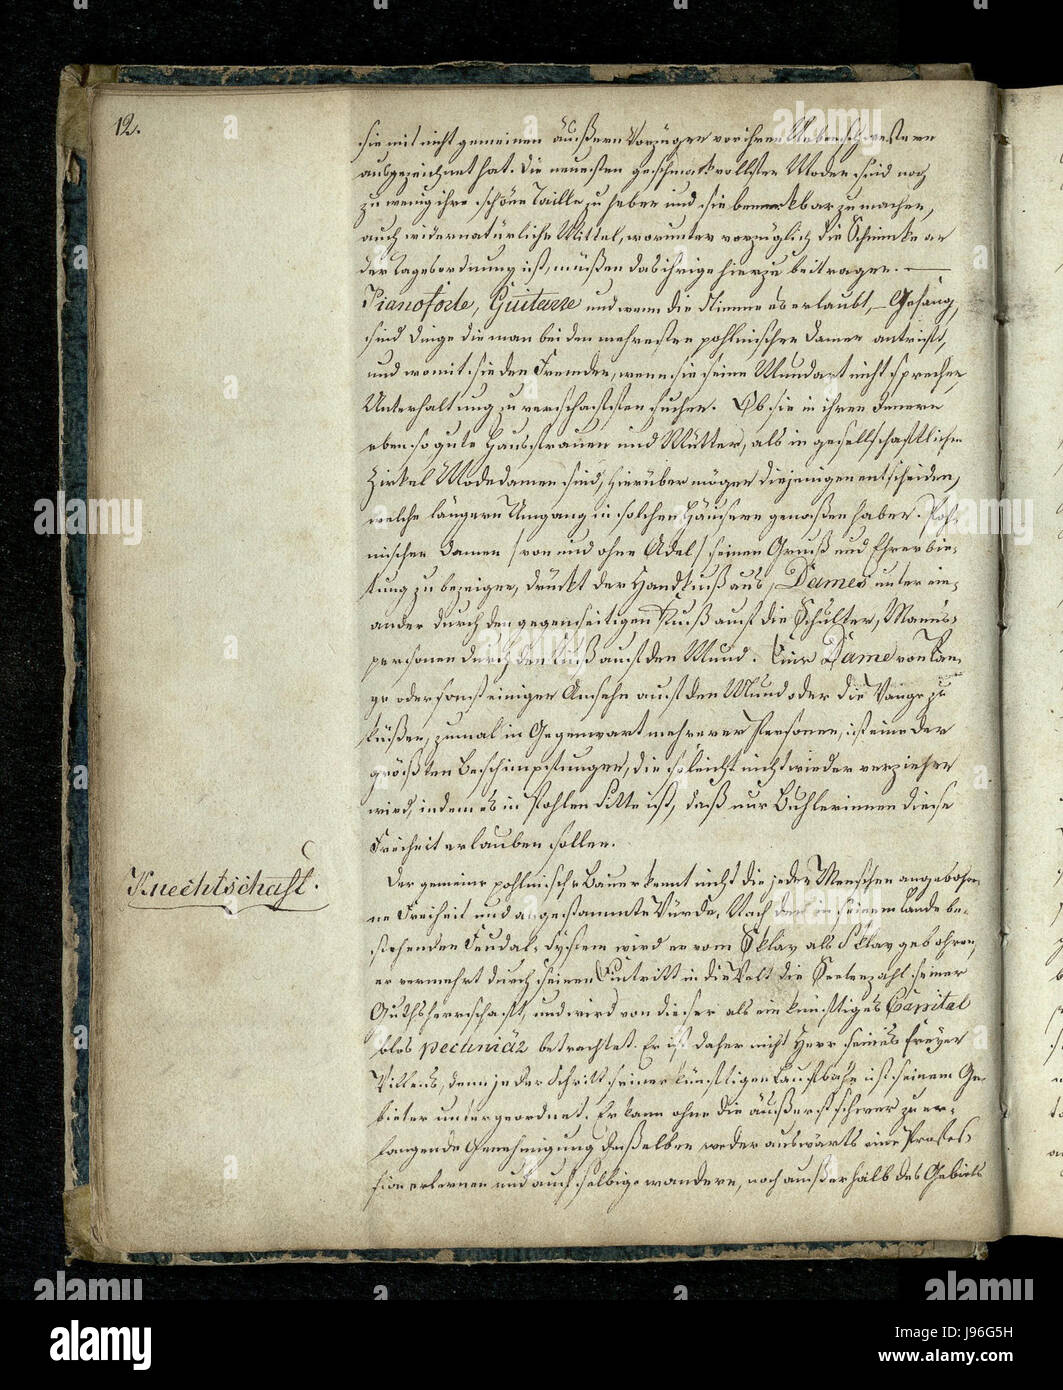 12.
sie mit nicht gemeinen äußern Vorzügen vor ihren Nebenschwestern
ausgezeichnet hat. Die neuesten geschmackvollsten Moden sind noch
zu wenig ihre schöne Taille zu heben und sie bemerkbar zu machen,
auch widernatürliche Mittel, worunter vorzüglich die Schminke an
der Tagesordnung ist, müßen das ihrige hierzu beitragen. —
Pianoforte, Guitarre und wenn die Stimme es erlaubt, – Gesang,
sind Dinge die man bei den mehresten pohlnischen Damen antrift,
und womit sie den Fremden, wenn sie seine Mundart nicht sprechen
Unterhaltung zu verschaffen suchen. Ob sie in ihren Innern
eben so gute Hausfrauen und Mütter, als in gesellschaftlichen
Zirkel Modedamen sind, hierüber mögen diejenigen entscheiden,
welche längern Umgang in solchen Häusern genoßen haben. Pohl-
nischen Damen /von und ohne Adel/ seinen Gruß und Ehrerbie-
tung zu bezeigen, drückt der Handkuß aus, Dames unter ein-
ander durch den gegenseitigen Kuß auf die Schulter, Manns-
personen durch den Kuß auf den Mund. Eine Dame von Ran-
ge oder sonst einigen Ansehn auf den Mund oder die Wange zu
küßen, zumal in Gegenwart mehrerer Personen, ist eine der
größten Beschimpfungen, die so leicht nicht wieder verziehen
wird, indem es in Pohlen Sitte ist, daß nur Buhlerinnen diese
Freiheit erlauben sollen.
Knechtschaft.
Der gemeine pohlnische Bauer kennt nicht die jeden Menschen angebohr-
ne Freiheit und angestammte Würde. Nach dem in seinem Lande be-
stehenden Feudal-System wird er vom Sklav als Sklav gebohren,
er vermehrt durch seinen Eintritt in die Welt die Seelenzahl seiner
Guthsherrschaft, und wird von dieser als ein künftiges Capital
blos pecuniär betrachtet. Er ist daher nicht Herr seines freyen
Willens, denn jeder Schritt seiner künftigen Laufbahn ist seinem Ge-
bieter untergeordnet. Er kann ohne die äußerst schwer zu er-
langende Genehmigung deßelben weder auswärts eine Profes-
sion erlernen und auf selbige wandern, noch außerhalb des Gebiets
alamy
a
alamy
Image ID: J96G5H
www.alamy.com